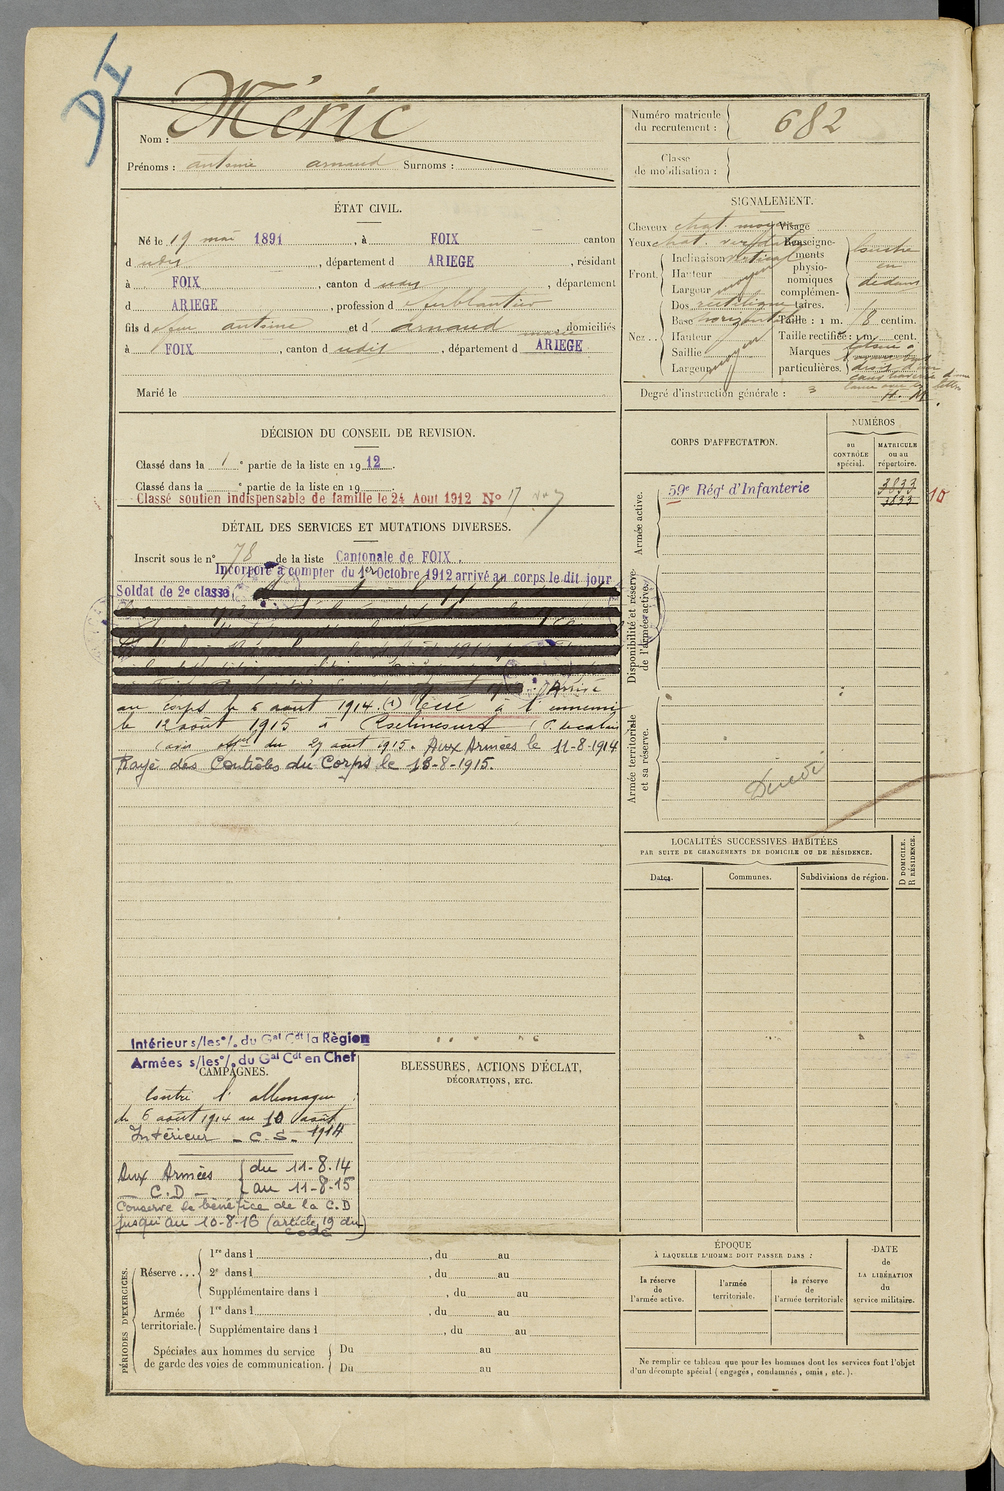 Méric
Nom :
Prénoms : antonie arnaud Surnoms :
ÉTAT CIVIL.
Né le 19 mai 1891, à FOIX canton
d udit, département d ARIEGE, résidant
à FOIX, canton d udit, département
d ARIEGE, profession de ferblantier
fils de feu antoine et d arnaud domiciliés
à FOIX, canton d udit, département d ARIEGE
Marié le
DÉCISION DU CONSEIL DE REVISION.
Classé dans la 1e partie de la liste en 1912.
Classé dans la e partie de la liste en 19
Classé soutien indispensable de famille le 24 Aout 1912 No 17
DÉTAIL DES SERVICES ET MUTATIONS DIVERSES.
Inscrit sous le n° 78 de la liste Cantonale de FOIX.
Incorporé à compter du 1er Octobre 1912 arrivé au corps le dit jour
Soldat de 2e classe
Arrivé
au corps le 6 aout 1914. (1) Tué à l'ennemi
le 12 août 1915 à
avis offel du 27 aout 1915. Aux Armées le 11-8-1914
Rayé des Contrôles du Corps le 13-8-1915.
Intérieur s/les o/. du Gal Cdt la Région
Armées s/les o/. du Gal Cdt en Chef
CAMPAGNES.
Contre l'allemagne
du 6 août 1914 au 10 août
Intérieur - C.S. - 1914
Aux Armées { du 11-8-14
- C.D - { au 11-8-15
Conserve le bénéfice de la C.D
jusqu'au 10-8-16 (article 19 du
code)
BLESSURES, ACTIONS D'ÉCLAT,
DÉCORATIONS, ETC.
PÉRIODES D'EXERCICES.
Réserve ...
1re dans l , du au
2e dans l , du au
Supplémentaire dans l , du au
Armée
territoriale.
1re dans l , du au
Supplémentaire dans l , du au
Spéciales aux hommes du service
de garde des voies de communication.
Du au
Du au
Numéro matricule
du recrutement : 682
Classe
de mobilisation :
SIGNALEMENT.
Cheveux chat. moyen
Yeux chat. verdatre
Front.
Inclinaison vertical
Hauteur
Largeur moyen
Nez...
Dos rectiligne
Base horizontale
Hauteur
Saillie moyen
Largeur
Visage
Renseigne-
ments
physio-
nomiques
complémen-
taires.
en
dedans
Taille : 1 m. 8 centim.
Taille rectifiée : 1 m. cent.
Marques
particulières.
Degré d'instruction générale : 3
CORPS D'AFFECTATION.
NUMÉROS
au
CONTRÔLE
spécial.
MATRICULE
ou au
répertoire.
Armée active.
59e Régt d'Infanterie
3833
3833
10
Disponibilité et réserve
de l'armée active.
Armée territoriale
et sa réserve.
LOCALITÉS SUCCESSIVES HABITÉES
PAR SUITE DE CHANGEMENTS DE DOMICILE OU DE RÉSIDENCE.
Dates.
Communes.
Subdivisions de région.
D DOMICILE.
R RÉSIDENCE.
ÉPOQUE
À LAQUELLE L'HOMME DOIT PASSER DANS :
la réserve
de
l'armée active.
l'armée
territoriale.
la réserve
de
l'armée territoriale
DATE
de
LA LIBÉRATION
du
service militaire.
Ne remplir ce tableau que pour les hommes dont les services font l'objet
d'un décompte spécial ( engagés, condamnés, omis, etc. ).